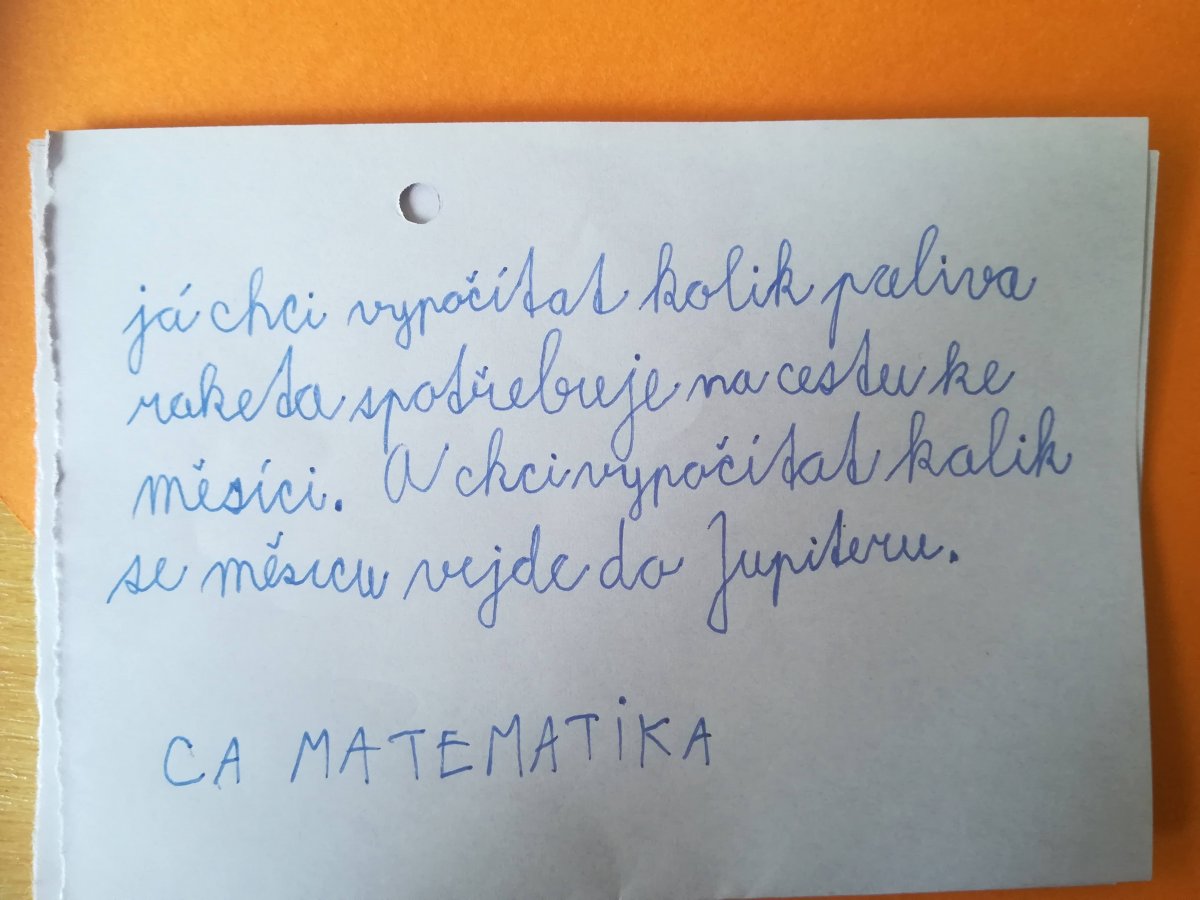 já chci vypočítat kolik paliva
raketa spotřebuje na cestu ke
měsíci. A chci vypočítat kolik
se měsicu vejde do Jupiteru.
CA MATEMATIKA